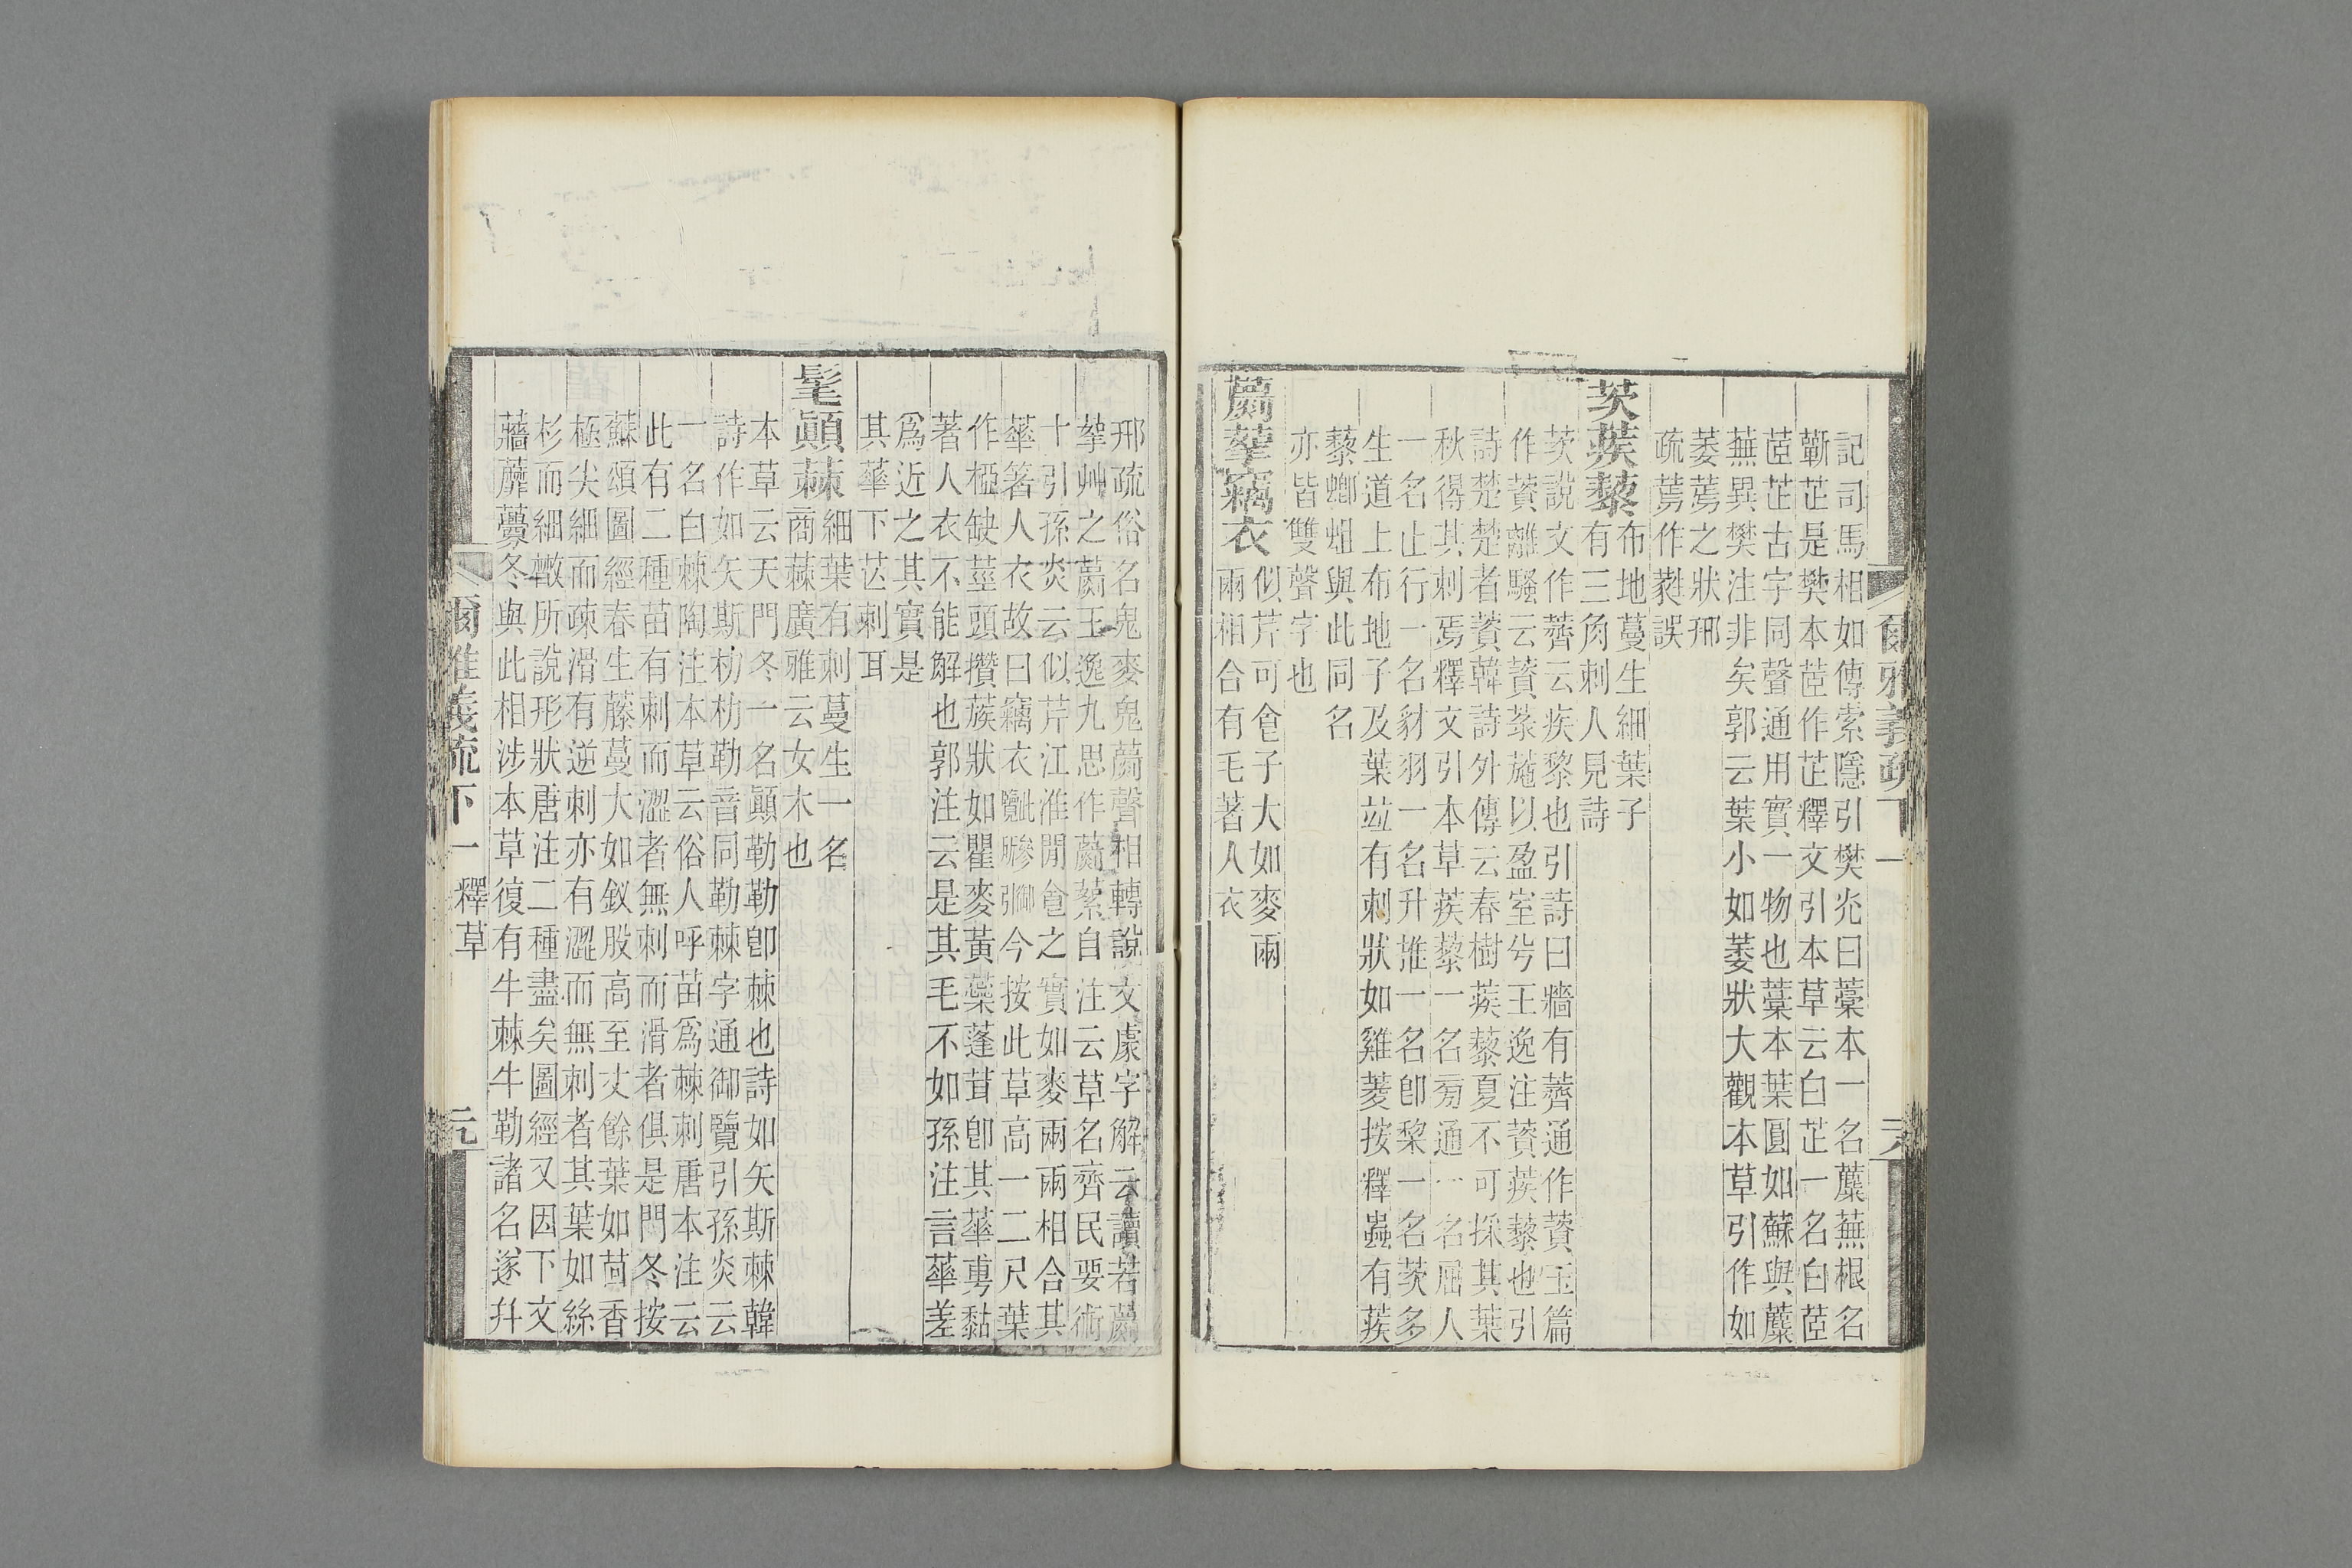 記司馬相如傳索隱引樊光曰藁本一名蘪蕪根名
蘄芷是樊本茝作芷釋文引本草云白芷一名白茝
茝芷古字同聲通用實一物也藁本葉圓如蘇與蘪
蕪異樊注非矣郭云葉小如萎狀大觀本草引作如
萎蔫之狀邢
疏蔫作蕤誤
茨蒺藜
布地蔓生細葉子
有三角刺人見詩
茨說文作薺云疾黎也引詩曰牆有薺通作薋玉篇
作薋離騷云薋菉葹以盈室兮王逸注薋蒺藜也引
詩楚楚者薋韓詩外傳云春樹蒺藜夏不可採其葉
秋得其刺焉釋文引本草蒺藜一名旁通一名屈人
一名止行一名豺羽一名升推一名卽棃一名茨多
生道上布地子及葉竝有刺狀如雞菱按釋蟲有蒺
藜蝍蛆與此同名
亦皆雙聲字也
蘮蒘竊衣
似芹可食子大如麥兩
兩相合有毛著人衣
爾雅義疏下一
邢疏俗名鬼麥鬼蘮聲相轉說文䖍字解云讀若蘮
蒘艸之蘮王逸九思作蘮蕠自注云草名齊民要術
十引孫炎云似芹江淮閒食之實如麥兩兩相合其
華著人衣故曰竊衣今按此草高一二尺葉
作椏缺莖頭攢蔟狀如瞿麥黃蘂蓬茸卽其華専黏
著人衣不能解也郭注云是其毛不如孫注言華差
爲近之其實是
其華下苾刺耳
髦顚蕀
細葉有刺蔓生一名
商蕀廣雅云女木也
本草云天門冬一名顚勒勒卽棘也詩如矢斯棘韓
詩作如矢斯朸朸勒音同勒棘字通御覽引孫炎云
一名白棘陶注本草云俗人呼苗爲棘刺唐本注云
此有二種苗有刺而澀者無刺而滑者俱是門冬按
蘇頌圖經春生藤蔓大如釵股高至丈餘葉如茴香
極尖細而疎滑有逆刺亦有澀而無刺者其葉如絲
杉而細散所說形狀唐注二種盡矣圖經又因下文
蘠蘼虋冬與此相涉本草復有牛棘牛勒諸名遂幷
爾雅義疏下一 釋草